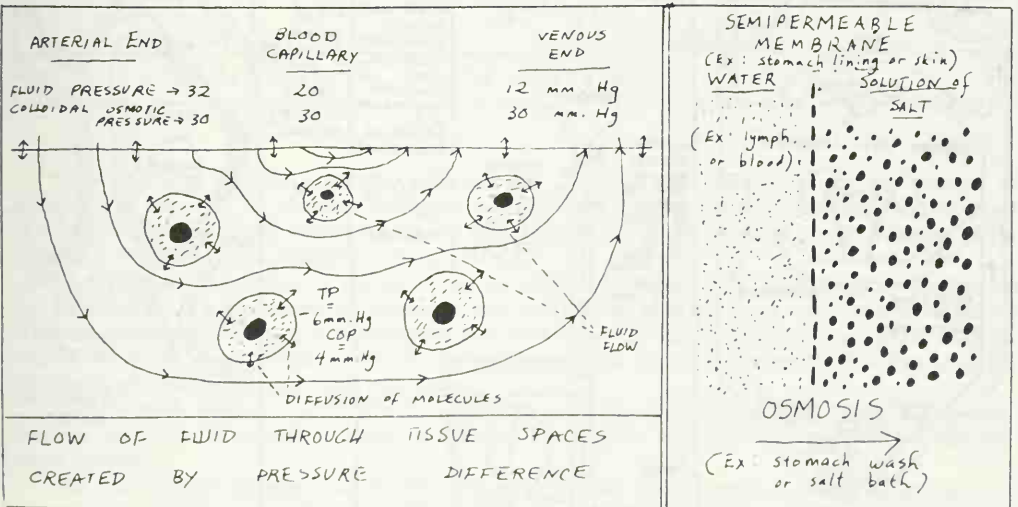 ARTERIAL END
BLOOD
CAPILLARY
VENOUS
END
FLUID PRESSURE → 32 20 12 mm Hg
COLLOIDAL OSMOTIC
PRESSURE → 30 30 30 mm. Hg
TP
=
6mm.Hg
COP
=
4mm.Hg
FLUID
FLOW
DIFFUSION OF MOLECULES
FLOW OF FLUID THROUGH TISSUE SPACES
CREATED BY PRESSURE DIFFERENCE
SEMIPERMEABLE
MEMBRANE
(Ex: stomach lining or skin)
WATER
(Ex: lymph
or blood)
SOLUTION of
SALT
OSMOSIS
(Ex: stomach wash
or salt bath)